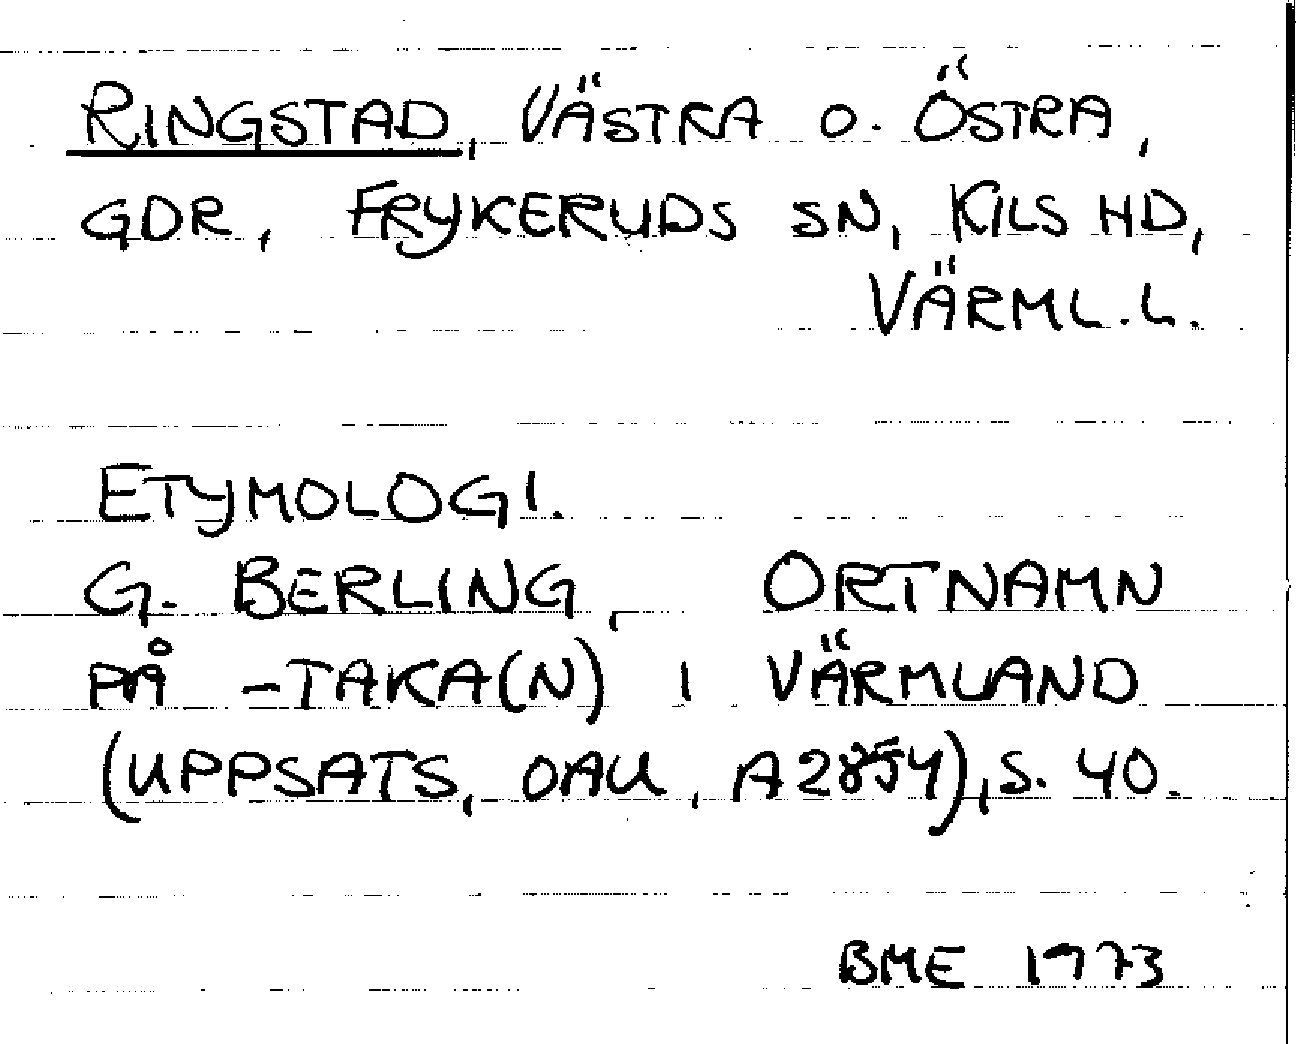 RINGSTAD, VÄSTRA O. ÖSTRA,
GDR, FRYKERUDS SN, KILS HD,
VÄRML.L.
ETYMOLOGI.
G. BERLING, ORTNAMN
PÅ -TAKA(N) I VÄRMLAND
(UPPSATS, OAU, A2854), S. 40.
BME 1973